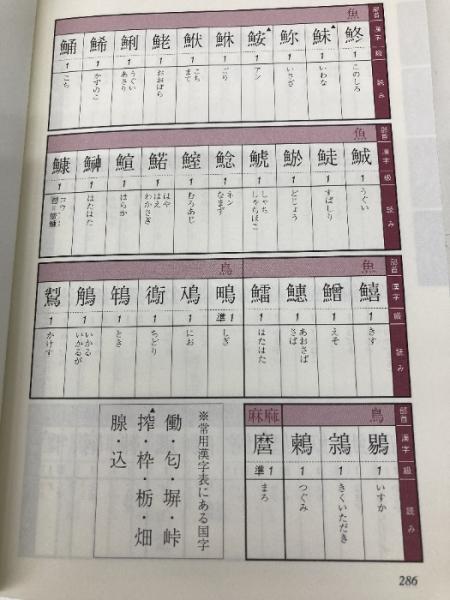 部首 漢字 級 読み
魚
鮗 1 このしろ
鮇▲ 1 いわな
1 いさざ
鮟▲ 1 アン
鮴 1 ごり
鮲 1 こち まて
鮱 1 おおぼら
鯏 1 うぐい あさり
鯑 1 かずのこ
鯒 1 こち
部首 漢字 級 読み
魚
鯎 1 うぐい
鯐 1 すばしり
鯲 1 どじょう
鯱 1 しゃち しゃちほこ
鯰 1 ネン なまず
鰘 1 むろあじ
鰙 1 はや はえ わかさぎ
鰚 1 はらか
鰰 1 はたはた
鱇 1 コウ
部首 漢字 級 読み
魚
鱚 1 きす
鱛 1 えそ
1 あおさば さば
鱩 1 はたはた
鳥
鴫 準1 しぎ
鳰 1 にお
鵆 1 ちどり
鵇 1 とき
鵤 1 いかる いかるが
鵥 1 かけす
部首 漢字 級 読み
鳥
鶍 1 いすか
鶎 1 きくいただき
鶫 1 つぐみ
麻麻
麿 準1 まろ
※常用漢字表にある国字
働・匂・塀・峠
搾▲・枠・栃・畑
腺・込
286